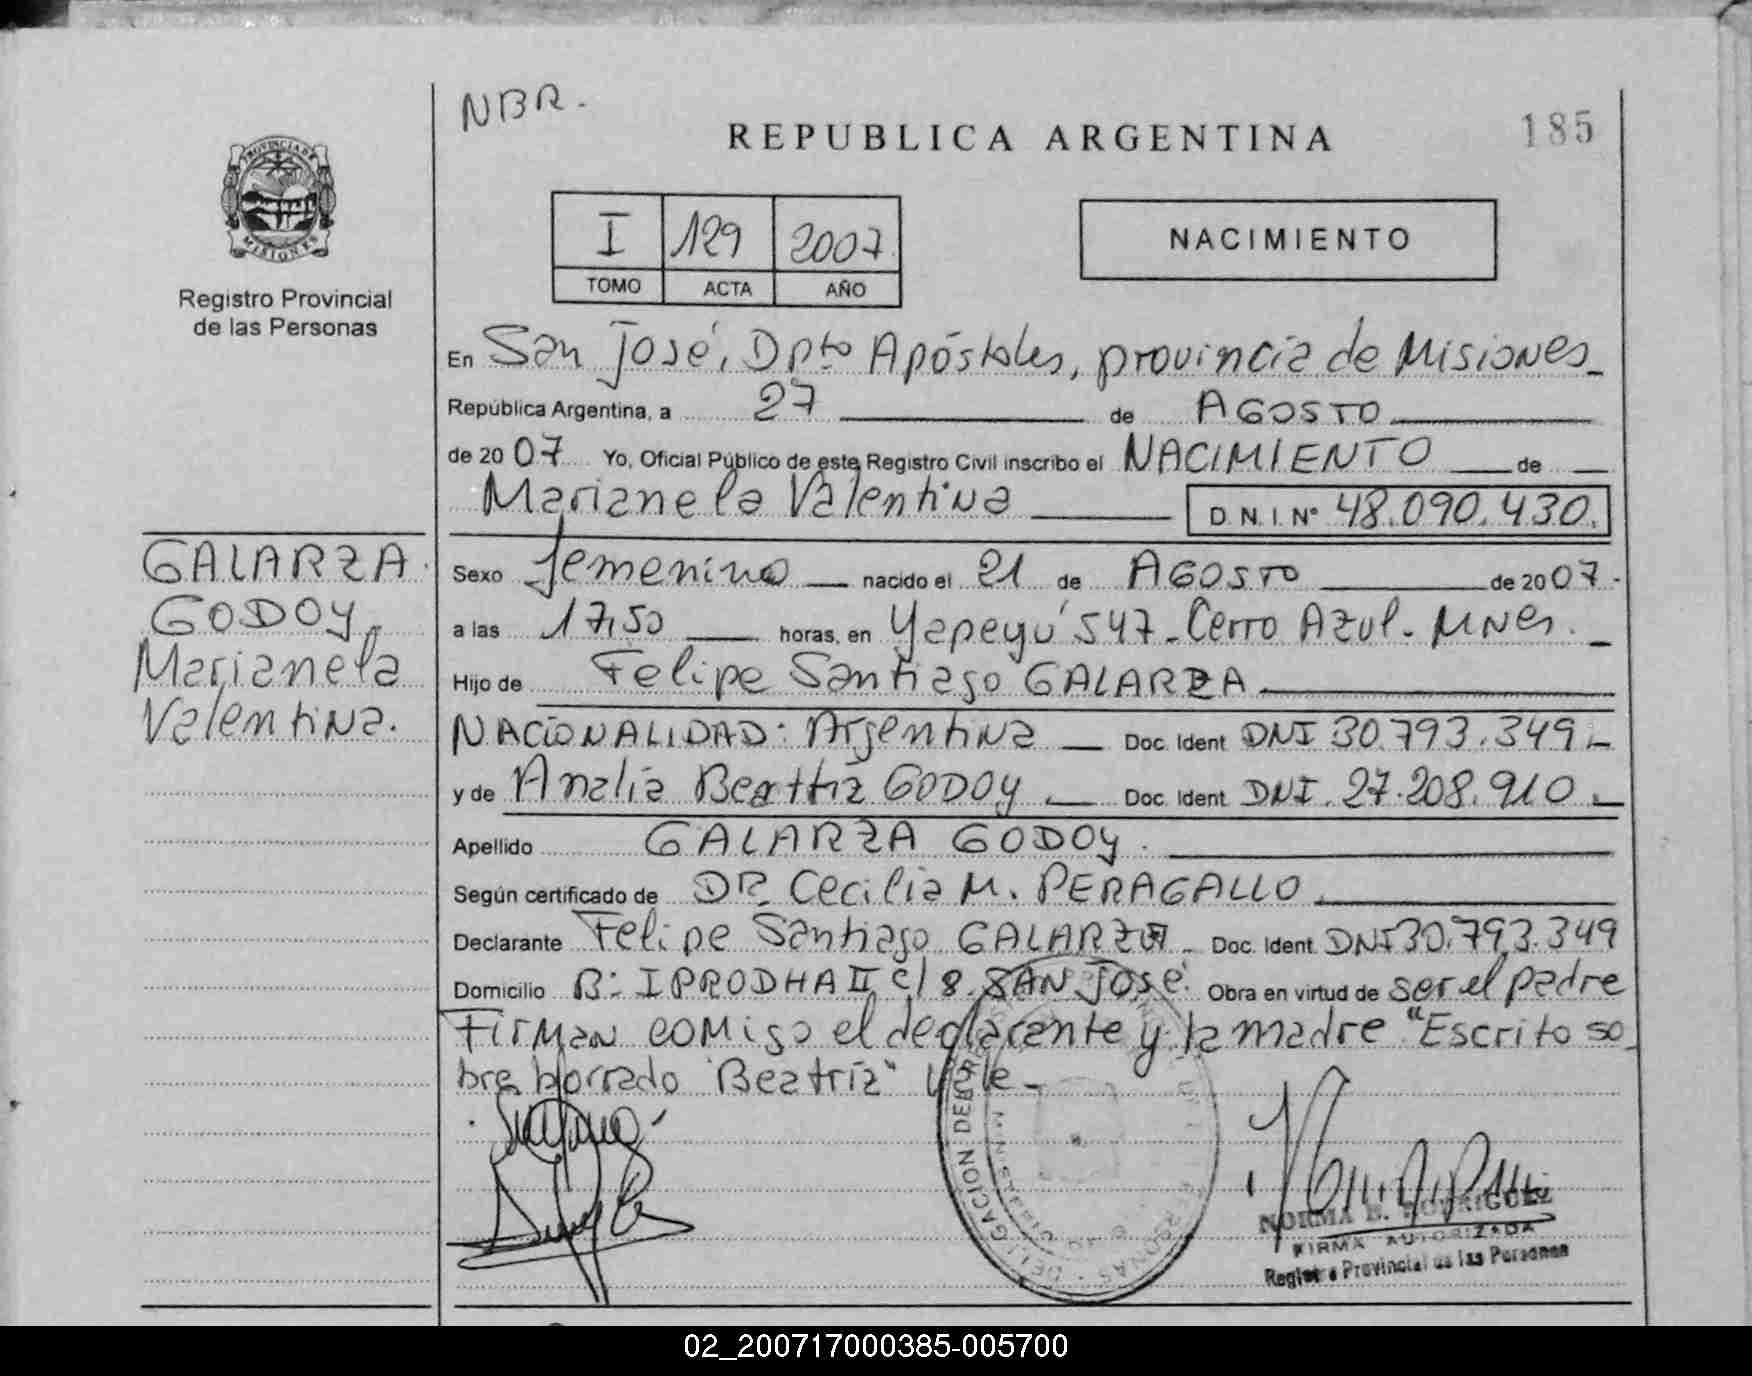 NBR.
REPUBLICA ARGENTINA
185
PROVINCIA DE
MISIONES
Registro Provincial
de las Personas
I 129 2007
TOMO ACTA AÑO
NACIMIENTO
En San José, Dpto Apóstoles, provincia de Misiones
República Argentina, a 27 de AGOSTO
de 2007 Yo, Oficial Público de este Registro Civil inscribo el NACIMIENTO de
Marianela Valentina D.N.I. N° 48.090.430.
GALARZA
GODOY,
Marianela
Valentina.
Sexo femenino nacido el 21 de AGOSTO de 2007.
a las 17,50 horas, en Yapeyú 547 - Cerro Azul - Mnes.
Hijo de Felipe Santiago GALARZA
NACIONALIDAD: Argentina Doc. Ident DNI 30.793.349.-
y de Analia Beatriz GODOY Doc. Ident DNI. 27.208.910.
Apellido GALARZA GODOY.
Según certificado de DR. Cecilia M. PERAGALLO.
Declarante Felipe Santiago GALARZA Doc. Ident DNI 30.793.349
Domicilio B: IPRODHA II c/ 8. SAN José. Obra en virtud de ser el padre
Firman comigo el declarante y la madre "Escrito so
bre borrado "Beatriz" Vale -
DELEGACION DEL
PERSONAS
NORMA B. RODRIGUEZ
FIRMA AUTORIZADA
Registro Provincial de las Personas
02_200717000385-005700